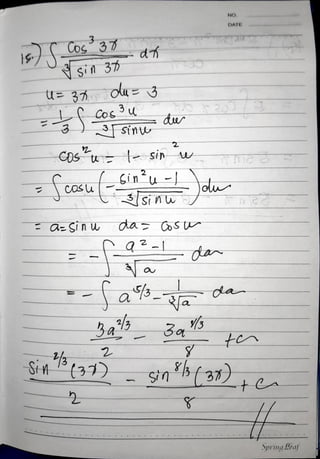 NO.
DATE
15.) ∫ cos³ 3x / ∛sin 3x dx
u = 3x du = 3
= 1/3 ∫ cos³u / ∛sinu du
cos²u = 1 - sin²u
= ∫ cosu (- sin²u - 1 / ∛sinu) du
= a = sinu da = cosu
= - ∫ a² - 1 / ∛a da
= - ∫ a^5/3 - 1 / ∛a da
3a^2/3 / 2 - 3a^8/3 / 8 + c
sin^2/3 (3x) / 2 - sin^8/3 (3x) / 8 + c
Spring Leaf